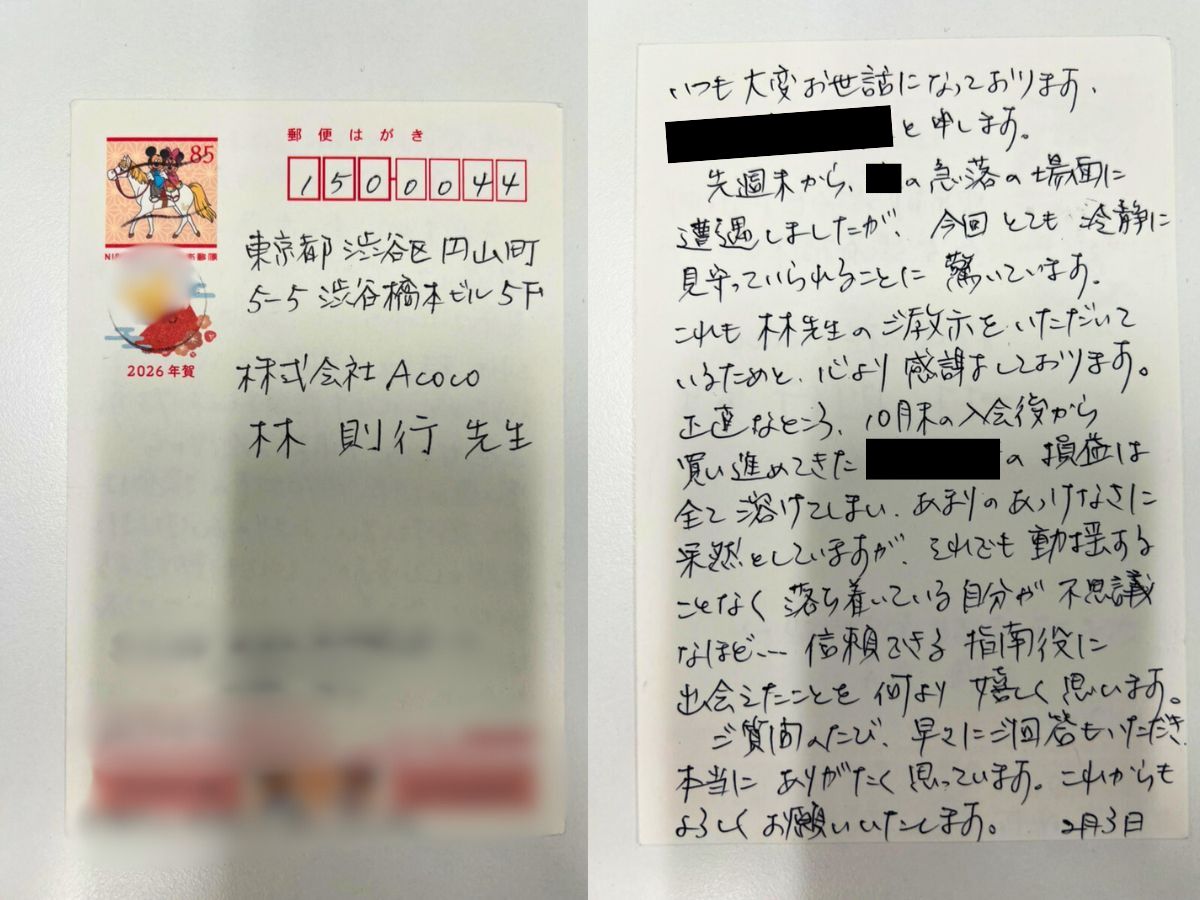 郵便はがき
85
150-0044
東京都渋谷区円山町
5-5 渋谷橋本ビル5F
2026年賀
株式会社Acoco
林 則行 先生
いつも大変お世話になっております、
と申します。
先週末から、の急落の場面に
遭遇しましたが、今回とても冷静に
見守っていられることに驚いています。
これも林先生のご教示をいただいて
いるためと、心より感謝申しております。
正直なところ、10月末の入会後から
買い進めてきたの損益は
全て溶けてしまい、あまりのあっけなさに
呆然としていますが、それでも動揺する
ことなく落ち着いている自分が不思議
なほど… 信頼できる指南役に
出会えたことを何より嬉しく思います。
ご質問のたび、早々にご回答もいただき
本当にありがたく思っています。これからも
よろしくお願いいたします。 2月3日